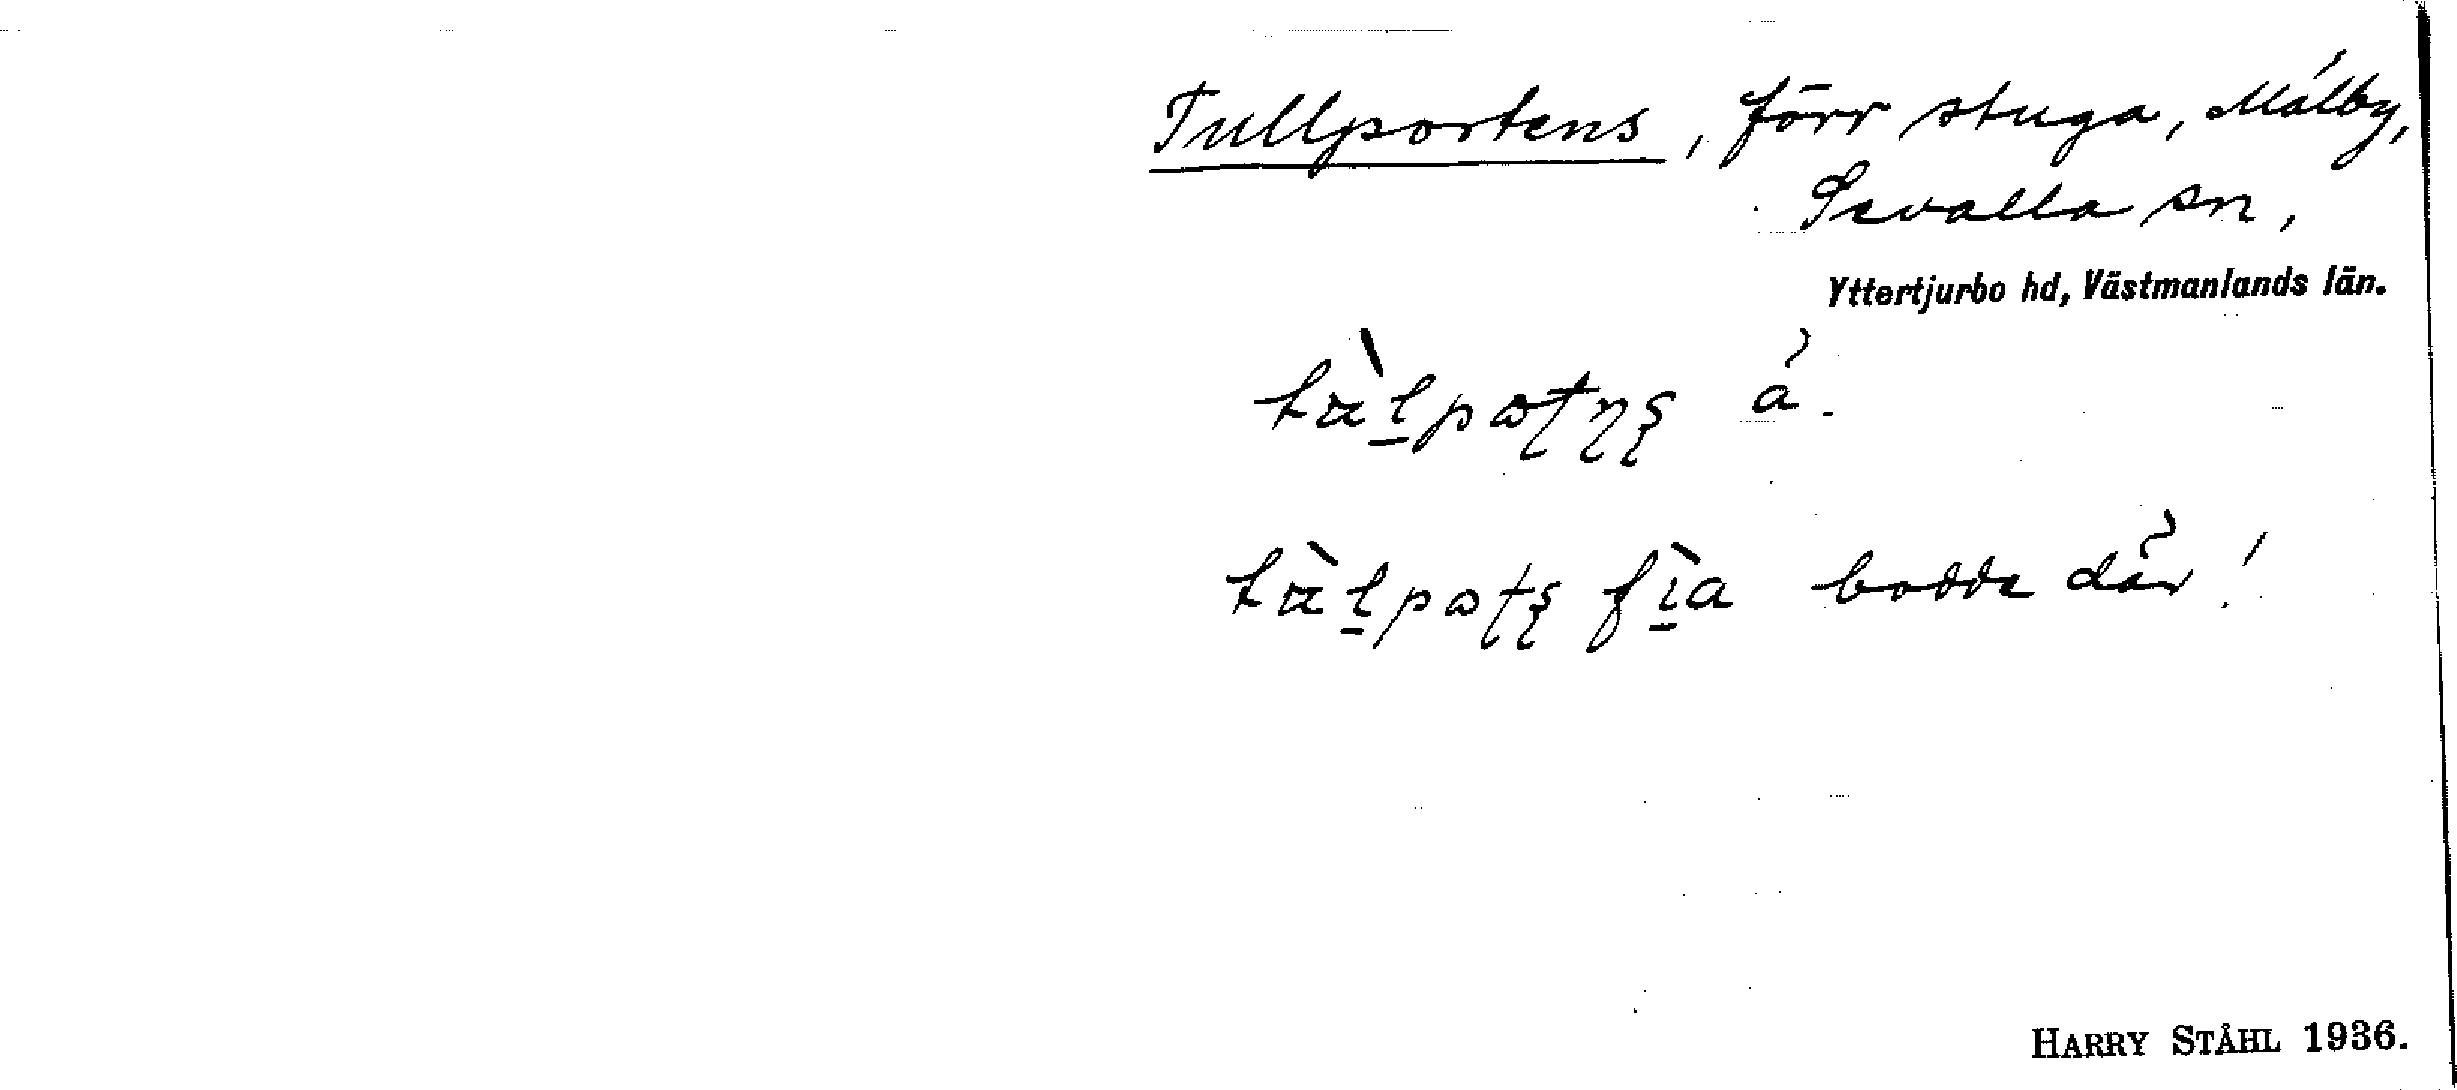 Tullportens, förr stuga, Målby,
Sevalla sn,
Yttertjurbo hd, Västmanlands län.
bodde där!
HARRY STÅHL 1936.